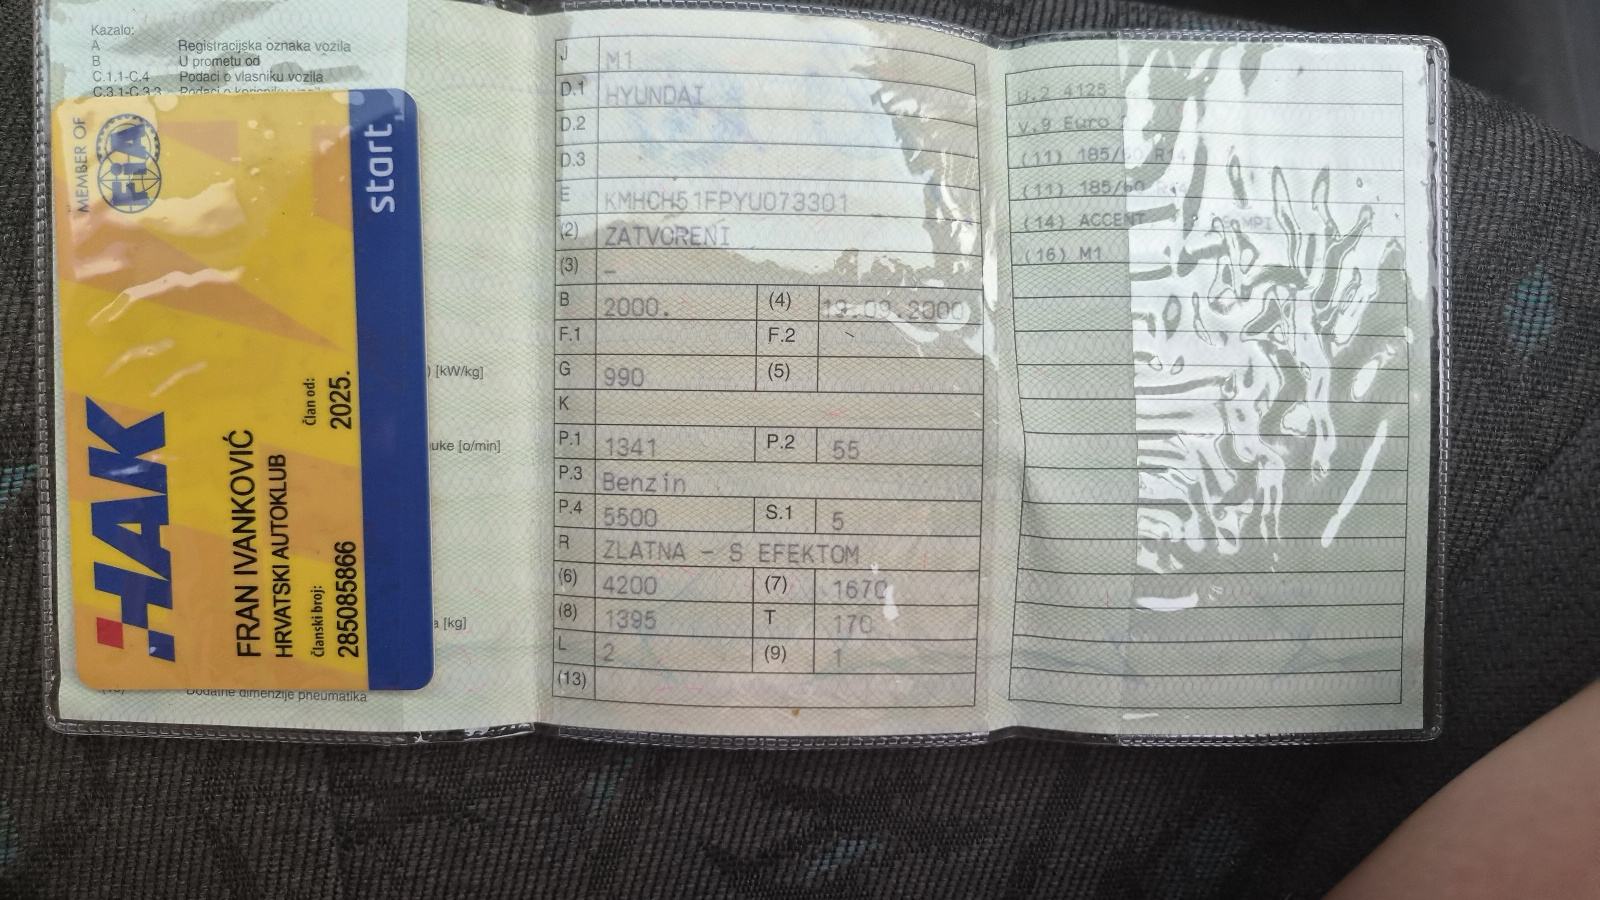 Kazalo:
A Registracijska oznaka vozila
B U prometu od
C.1.1-C.4 Podaci o vlasniku vozila
C.3.1-C.3.3 Podaci o korisniku vozila
) [kW/kg]
uke [o/min]
a [kg]
Dodatne dimenzije pneumatika
MEMBER OF
FiA
HAK
FRAN IVANKOVIĆ
HRVATSKI AUTOKLUB
Članski broj:
285085866
Član od:
2025.
start
J M1
D.1 HYUNDAI
D.2
D.3
E KMHCH51FPYU073301
(2) ZATVORENI
(3) –
B 2000. (4) 19.09.2000
F.1 F.2
G 990 (5)
K
P.1 1341 P.2 55
P.3 Benzin
P.4 5500 S.1 5
R ZLATNA - S EFEKTOM
(6) 4200 (7) 1670
(8) 1395 T 170
L 2 (9) 1
(13)
U.2 4125
V.9 Euro
(11) 185/60 R14
(11) 185/60 R14
(14) ACCENT MPI
(16) M1